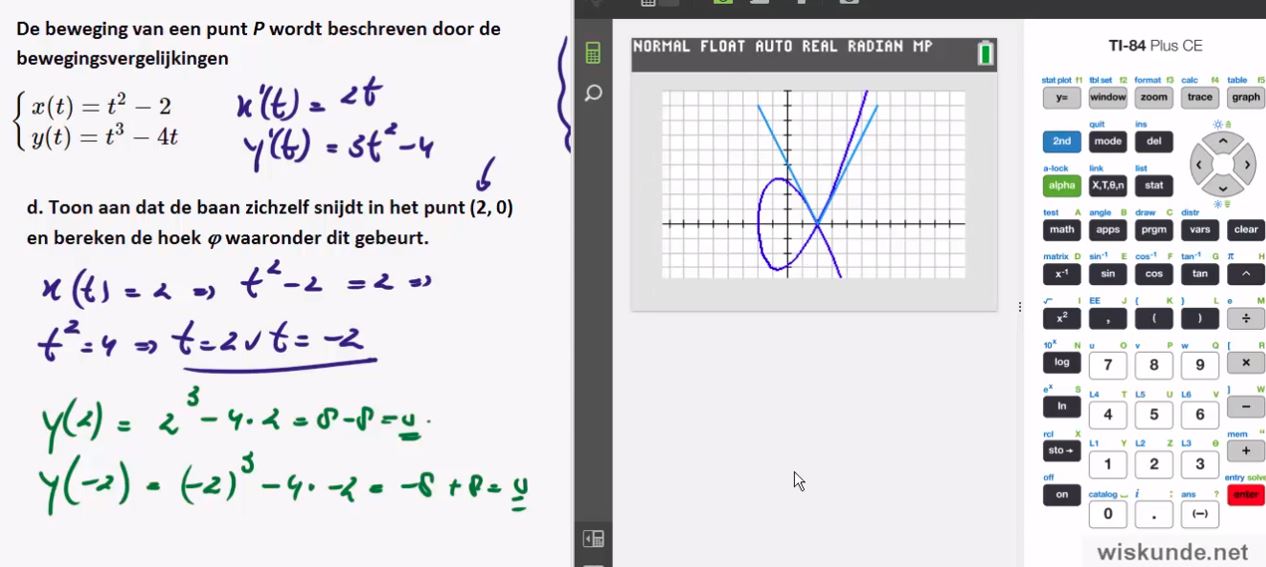 De beweging van een punt P wordt beschreven door de
bewegingsvergelijkingen
x(t) = t² − 2
y(t) = t³ − 4t
x'(t) = 2t
y'(t) = 3t² − 4
d. Toon aan dat de baan zichzelf snijdt in het punt (2, 0)
en bereken de hoek φ waaronder dit gebeurt.
x(t) = 2 => t² − 2 = 2 =>
t² = 4 => t = 2 ∨ t = −2
y(2) = 2³ − 4 · 2 = 8 − 8 = 0
y(−2) = (−2)³ − 4 · −2 = −8 + 8 = 0
NORMAL FLOAT AUTO REAL RADIAN MP
TI-84 Plus CE
stat plot f1 tbl set f2 format f3 calc f4 table f5
y= window zoom trace graph
quit ins
2nd mode del
a-lock link list
alpha X,T,θ,n stat
test A angle B draw C distr
math apps prgm vars clear
matrix D sin⁻¹ E cos⁻¹ F tan⁻¹ G π H
x⁻¹ sin cos tan ^
√ I EE J { K } L e M
x² , ( ) ÷
10ˣ N u O v P w Q [ R
log 7 8 9 ×
eˣ S L4 T L5 U L6 V ] W
ln 4 5 6 −
rcl X L1 Y L2 Z L3 θ mem "
sto→ 1 2 3 +
off catalog i : ans ? entry solve
on 0 . (−) enter
wiskunde.net